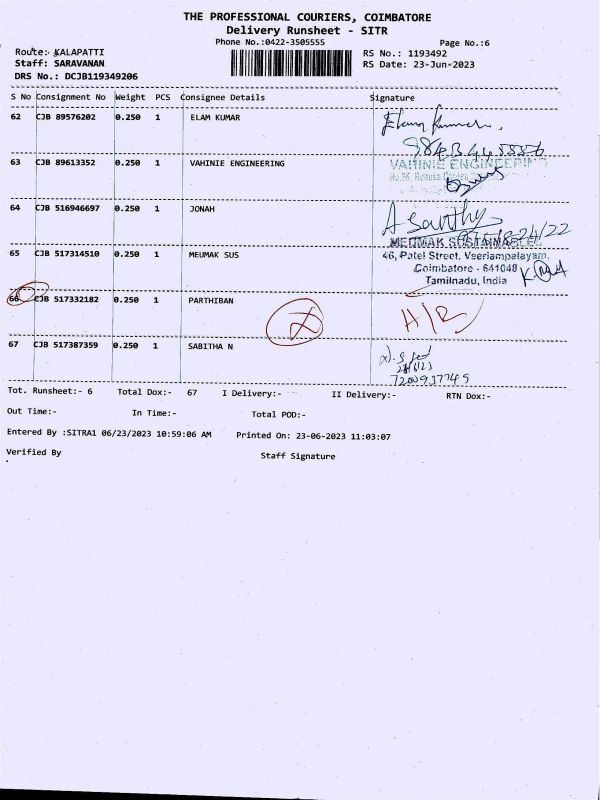 THE PROFESSIONAL COURIERS, COIMBATORE
Delivery Runsheet - SITR
Phone No.:0422-3505555 Page No.:6
Route: KALAPATTI RS No.: 1193492
Staff: SARAVANAN RS Date: 23-Jun-2023
DRS No.: DCJB119349206
S No Consignment No Weight PCS Consignee Details Signature
62 CJB 89576202 0.250 1 ELAM KUMAR
Elam Kumar
63 CJB 89613352 0.250 1 VAHINIE ENGINEERING
VAHINIE ENGINEERING
64 CJB 516946697 0.250 1 JONAH
A Santhy
65 CJB 517314510 0.250 1 MEUMAK SUS
MEUMAK SUSTAINABLE
46, Patel Street, Veeriampalayam,
Coimbatore - 641048
Tamilnadu, India
66 CJB 517332182 0.250 1 PARTHIBAN
67 CJB 517387359 0.250 1 SABITHA N
7200937745
Tot. Runsheet:- 6 Total Dox:- 67 I Delivery:- II Delivery:- RTN Dox:-
Out Time:- In Time:- Total POD:-
Entered By :SITRA1 06/23/2023 10:59:06 AM Printed On: 23-06-2023 11:03:07
Verified By Staff Signature